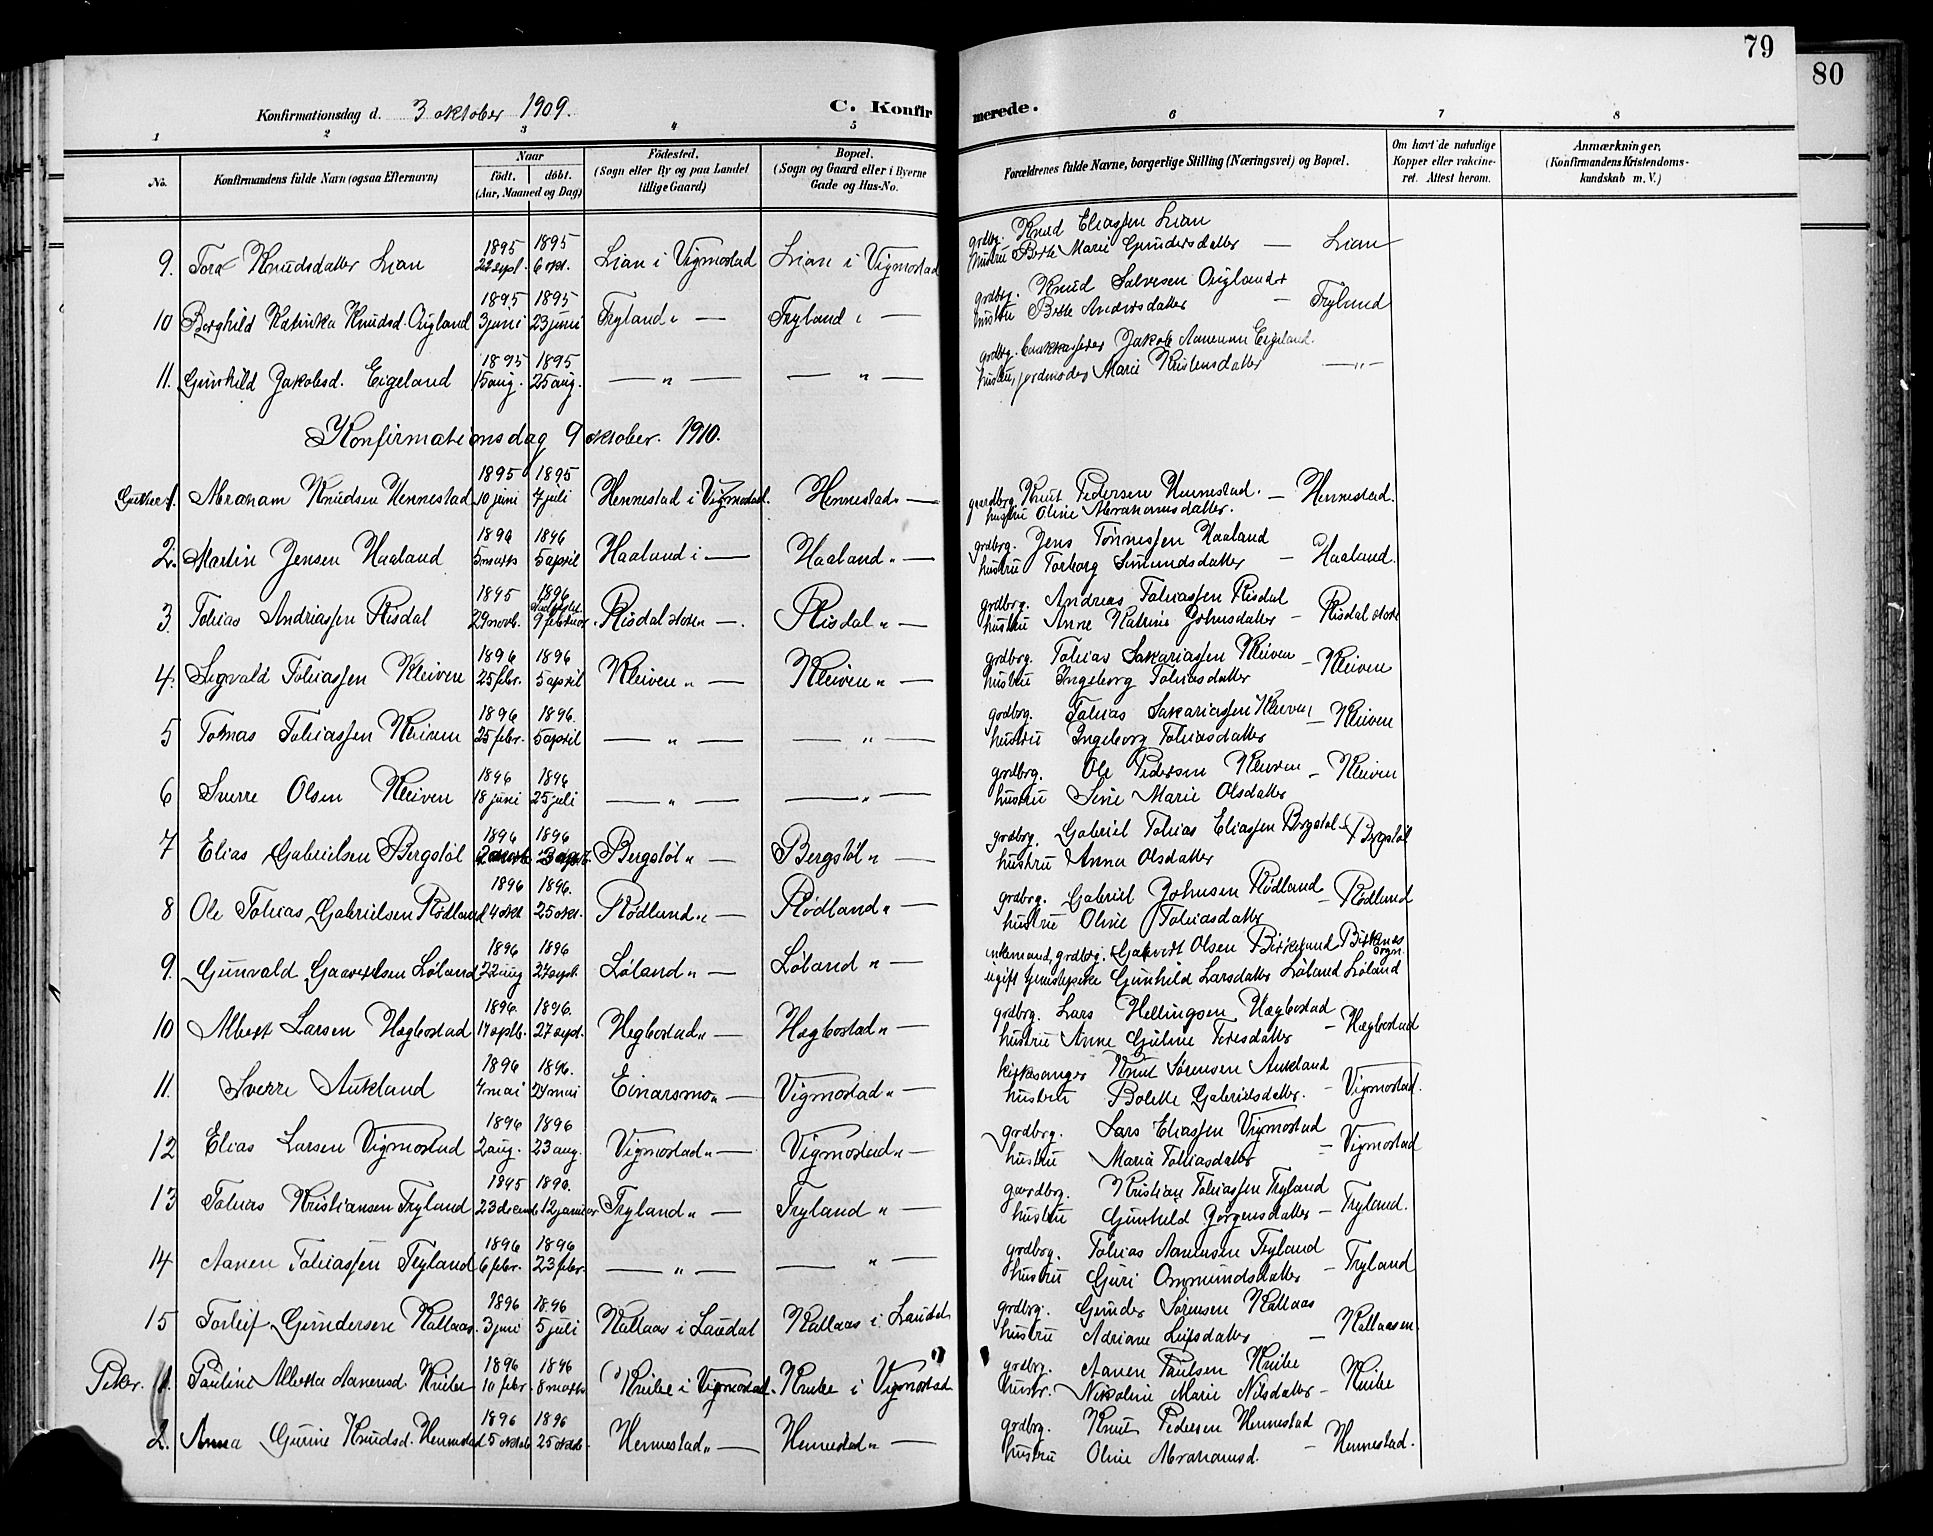 79
80
Konfirmationsdag d. 3 oktober 1909.
C. Konfirmerede.
1 2 3 4 5 6 7 8
No.
Konfirmandens fulde Navn (ogsaa Efternavn)
Naar
født. døbt.
(Aar, Maaned og Dag)
Fødested.
(Sogn eller By og paa Landet
tillige Gaard)
Bopæl.
(Sogn og Gaard eller i Byerne
Gade og Hus-No.
Forældrenes fulde Navne, borgerlige Stilling (Næringsvei) og Bopæl.
Om havt de naturlige
Kopper eller vakcine-
ret. Attest herom.
Anmærkninger.
(Konfirmandens Kristendoms-
kundskab m. V.)
9. Tora Knudsdatter Lian 1895 22 sept. 1895 6 okt. Lian i Vigmostad Lian i Vigmostad
grdbg. Knud Eliassen Lian
hustru Berte Marie Gundersdatter — Lian
10 Borghild Katinka Knudsd. Øigland 1895 3 juni 1895 23 juni Tryland " — Tryland " —
grdbg. Knud Salvesen Øigland
hustru Berte Andersdatter — Tryland
11. Gunhild Jakobsd. Eigeland 1895 15 aug. 1895 25 aug. — " — — " —
grdbg. Jakob Aanensen Eigeland.
hustru, jordmoder Marie Kristensdatter — " —
Konfirmationsdag 9 oktober. 1910.
Gutter 1. Abraham Knudsen Hennestad 1895 10 juni 1895 7 juli Hennestad i Vigmostad. Hennestad " —
gaardbrg. Knut Pedersen Hennestad. — Hennestad.
hustru Oline Abrahamsdatter.
2. Martin Jensen Haaland 1896 5 marts 1896 5 april Haaland i — Haaland " —
grdbrg. Jens Tønnessen Haaland
hustru Torborg Simundsdatter — Haaland.
3. Tobias Andriassen Risdal 1895 29 novb. 1896 9 februar Risdal store " — Risdal " —
grdbrg. Andreas Tobiassen Risdal
hustru Anne Katrine Johnsdatter — Risdal store
4. Sigvald Tobiassen Kleiven 1896 25 febr. 1896 5 april Kleiven " — Kleiven " —
grdbrg. Tobias Sakariassen Kleiven — Kleiven
hustru Ingeborg Tobiasdatter
5 Tomas Tobiassen Kleiven 1896 25 febr. 1896. 5 april — " — — " —
grdbrg. Tobias Sakariassen Kleiven — Kleiven
hustru Ingeborg Tobiasdatter
6 Sverre Olsen Kleiven 1896 18 juni 1896 25 juli — " — — " —
grdbrg. Ole Pedersen Kleiven — Kleiven
hustru Sine Marie Olsdatter
7 Elias Gabrielsen Bergstøl 1896 1896 Bergstøl " — Bergstøl " —
grdbrg. Gabriel Tobias Eliassen Bergstøl — Bergstøl
hustru Anna Olsdatter
8 Ole Tobias Gabrielsen Rødland 1896 4 okt 1896. 25 okt. Rødland " — Rødland " —
grdbrg. Gabriel Johnsen Rødland — Rødland
hustru Oline Tobiasdatter
9. Gunvald Løland 1896 22 aug 1896 27 sept. Løland " — Løland " —
enkemand, grdbrg. Olsen Birkeland Birkenes sogn.
ugift tjenestepike Gunhild Larsdatter Løland Løland
10 Albert Larsen Hægbostad 1896. 17 septb. 1896. 27 sept. Hegbostad " — Hægbostad " —
grdbrg. Lars Hellingsen Hægbostad — Hægbostad
hustru Anne Guline Terisdatter
11. Sverre Aukland 1896 4 mai 1896. 24 mai Einarsmo " — Vigmostad " —
kirkesanger Knut Sørensen Aukland
hustru Bolette Gabrielsdatter. — Vigmostad.
12 Elias Larsen Vigmostad 1896 2 aug. 1896 23 aug. Vigmostad " — Vigmostad " —
grdbrg. Lars Eliassen Vigmostad
hustru Maria Tobiasdatter — Vigmostad
13 Tobias Kristiansen Tryland 1895 23 decemb 1896. 12 januar Tryland " — Tryland " —
gaardbrg. Kristian Tobiassen Tryland
hustru Gunhild Jørgensdatter — Tryland.
14 Aanen Tobiassen Tryland 1896 6 febr. 1896 23 febr. — " — — " —
grdbrg. Tobias Aanensen Tryland
hustru Guri Ommundsdatter — Tryland
15 Torleif Gundersen Kallaas. 1896 3 juni 1896 5 juli Kallaas i Laudal Kallaas i Laudal
grdbrg. Gunder Sørensen Kallaas
hustru Adriane Leifsdatter — Kallaasen
Piker. 1. Pauline Alberta Aanensd. Knibe 1896 10 febr. 1896 8 marts Knibe i Vigmostad. Knibe i Vigmostad
grdbrg. Aanen Paulsen Knibe
hustr. Nikoline Marie Nilsdatter — Knibe
2. Anna Gurine Knudsd. Hennestad 1896 5 oktob 1896 25 oktb. Hennestad " — Hennestad " —
grdbrg. Knut Pedersen Hennestad
hustru Oline Abrahamsd. — Hennestad.